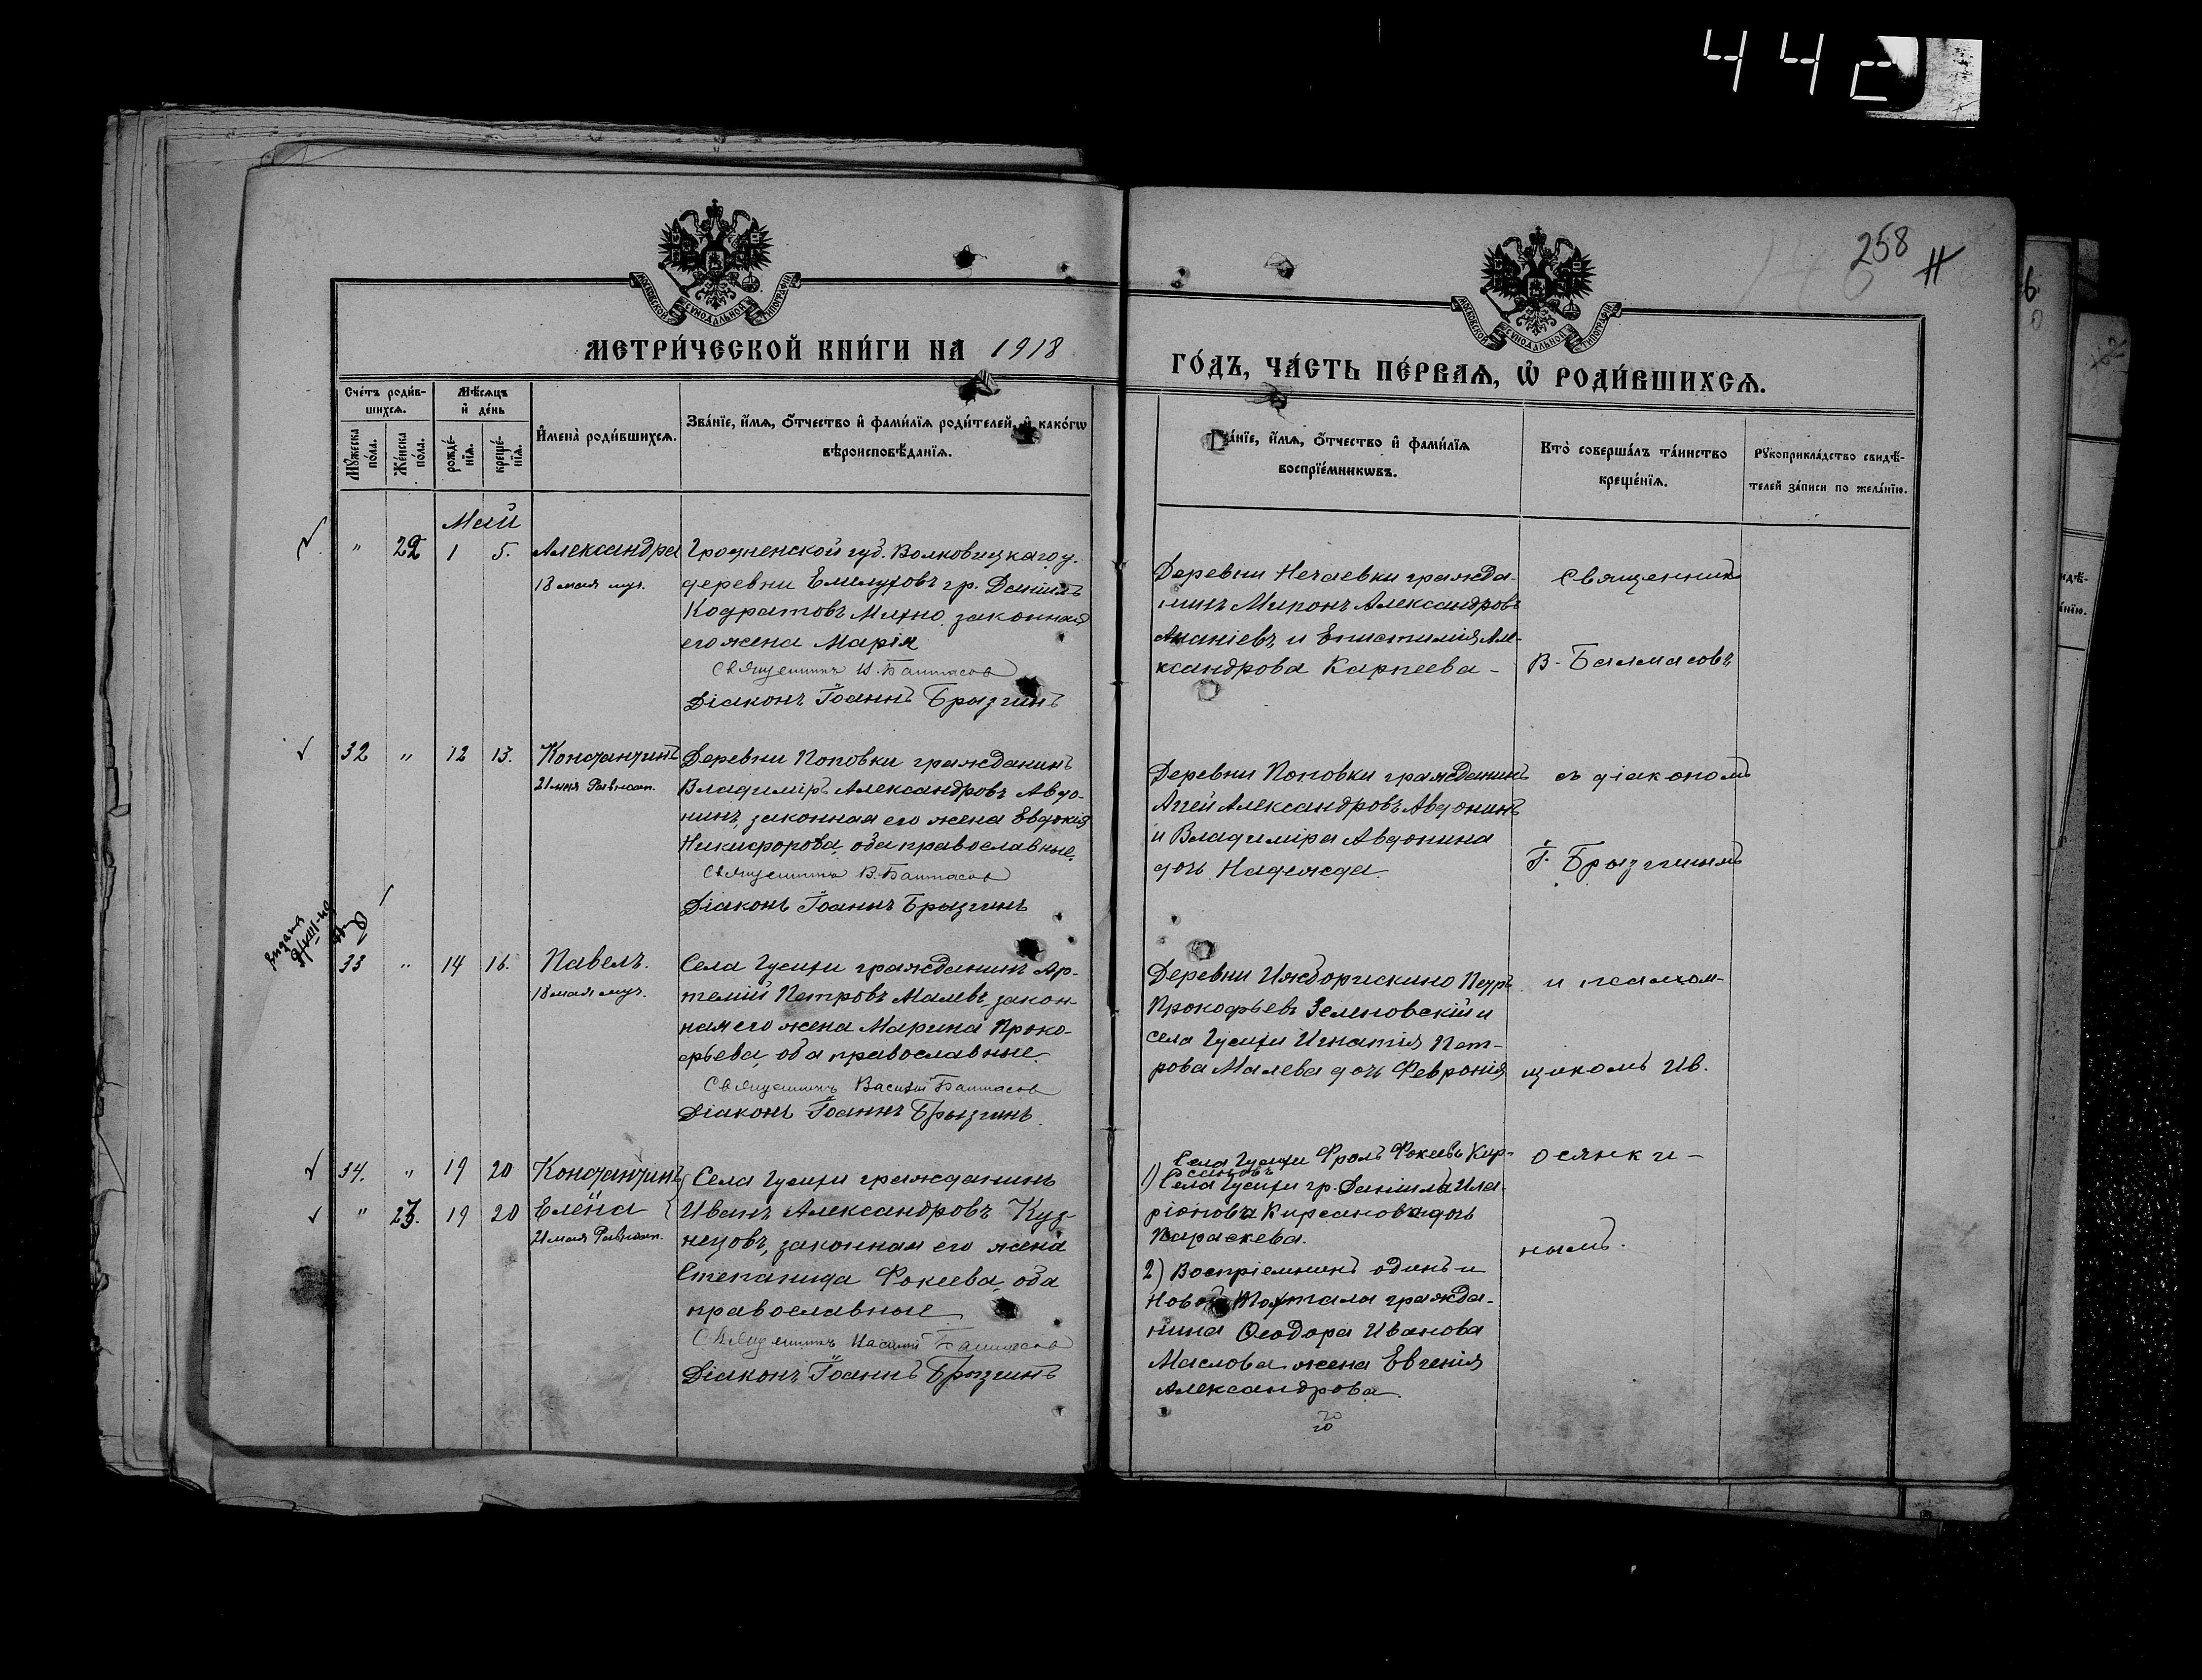 442
258
МОСКОВСКОЙ СѴНОДАЛЬНОЙ ТИПОГРАФІИ
МОСКОВСКОЙ СѴНОДАЛЬНОЙ ТИПОГРАФІИ
МЕТРИ́ЧЕСКОЙ КНИ́ГИ НА 1918
ГО́ДЪ, ЧА́СТЬ ПЕ́РВАѦ, Ѡ҆ РОДИ́ВШИХСѦ.
Сче́тъ роди́в-
шихсѧ.
Мꙋ́жеска по́ла.
Же́нска по́ла.
Мѣ́сѧцъ
и҆ де́нь
рожде́-
нїѧ.
креще́-
нїѧ.
И҆мена̀ роди́вшихсѧ.
Зва́нїе, и҆́мѧ, о҆́тчество и҆ фами́лїѧ роди́телей, и҆ како́гѡ
вѣроисповѣ́данїѧ.
Зва́нїе, и҆́мѧ, о҆́тчество и҆ фами́лїѧ
воспрїе́мникѡвъ.
Кто̀ соверша́лъ та́инство
креще́нїѧ.
Рꙋкоприкла́дство свидѣ́-
телей за́писи по жела́нїю.
Май
" 22 1 5. Александра
18 мая муч.
Гродненской губ. Волковицкаго у.
деревни гр. Даніилъ
Кодратовъ Михно, законная
его жена Марія
Священникъ Балмасов
Діаконъ Іоаннъ Брызгинъ
Деревни Нечаевки гражда-
нинъ Миронъ Александровъ
Ананіевъ и Епистимія Але-
ксандрова Карпеева -
Священник
В. Балмасовъ
32 " 12 13. Константинъ
21 мая Равноап.
Деревни Поповки гражданинъ
Владиміръ Александровъ Авдо-
нинъ, законная его жена Евдокія
Никифорова, оба православные.
Священникъ В. Балмасов
Діаконъ Іоаннъ Брызгинъ
Деревни Поповки гражданинъ
Аггей Александровъ Авдонинъ
и Владиміра Авдонина
дочь Надежда.
съ діакономъ
І. Брызгинымъ
33 " 14 16. Павелъ.
18 мая муч.
Села Гусихи гражданинъ Ар-
темій Петровъ Малевъ, закон-
ная его жена Марина Проко-
фьева, оба православные.
Священникъ Василій Балмасов
Діаконъ Іоаннъ Брызгинъ.
Деревни Ижборискино Петръ
Прокофьевъ Зеленовскій и
села Гусихи Игнатія Пет-
рова Малева дочь Февронія
и псалом-
щикомъ Ив.
34. " 19 20 Константинъ
" 23. 19 20 Елена
21 мая Равноап.
Села Гусихи гражданинъ
Иванъ Александровъ Куз-
нецовъ, законная его жена
Степанида Фокеева, оба
православные
Священникъ Василій Балмасов
Діаконъ Іоаннъ Брызгинъ
Села Гусихи Фролъ Фокеевъ Кир-
сановъ
1) Села Гусихи гр. Даніила Ила-
ріонова Кирсанова дочь
Параскева.
2) Воспріемникъ одинъ и
Новой гражда-
нина Ѳеодора Иванова
Маслова жена Евгенія
Александрова.
Осянки-
нымъ.